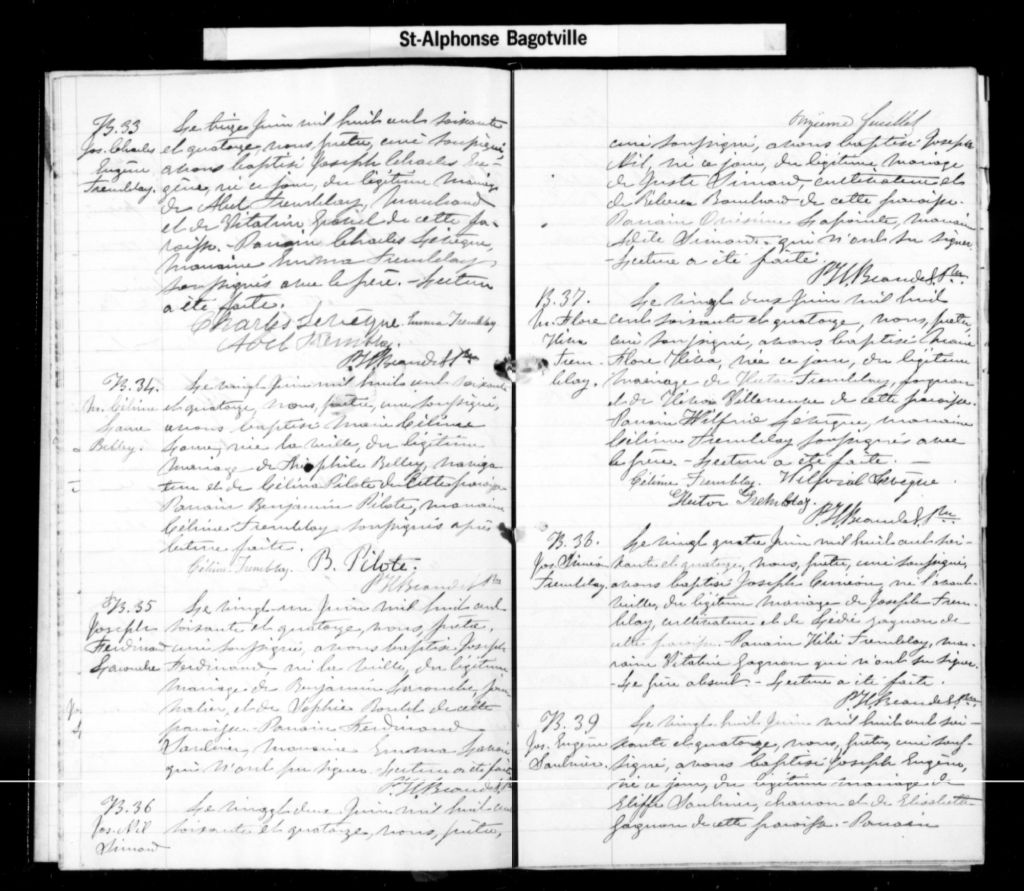 St-Alphonse Bagotville
B.33
Jos. Charles
Eugène
Tremblay.
Le treize Juin mil huit cent soixante
et quatorze, nous, prêtre, curé soussigné
avons baptisé Joseph Charles Eu-
gène, né ce jour, du légitime mariage
de Abel Tremblay, marchand
et de Vitaline Gravel de cette pa-
roisse. - Parrain Charles Lévêque,
marraine Emma Tremblay
soussignés avec le père. - Lecture
a été faite.
Charles Lévêque. Emma Tremblay
Abel Tremblay.
Ptre
B.34.
M. Célina
Laure
Belley.
Le vingt Juin mil huit cent soixante
et quatorze, nous, prêtre, curé soussigné,
avons baptisé Marie Célina
Laure, née la veille, du légitime
mariage de Théophile Belley, naviga-
teur et de Célina Pilote de cette paroisse
Parrain Benjamin Pilote, marraine
Célina Tremblay soussignés après
lecture faite.
Célina Tremblay. B. Pilote.
Ptre
B.35
Joseph
Ferdinand
Larouche
Le vingt-un Juin mil huit cent
soixante et quatorze, nous, prêtre,
curé soussigné, avons baptisé Joseph
Ferdinand, né la veille, du légitime
mariage de Benjamin Larouche, jour-
nalier, et de Sophie de cette
paroisse. Parrain Ferdinand
Saulnier, Marraine Emma
qui n'ont su signer. Lecture a été faite
B.36
Jos. Nil
Simard
Le vingt deux Juin mil huit cent
soixante et quatorze, nous, prêtre,
onzième feuillet
curé soussigné, avons baptisé Joseph
Nil, né ce jour, du légitime mariage
de Juste Simard, cultivateur et
de Rebecca Bouchard de cette paroisse.
Parrain Onésime Lapointe, marraine
Adèle Simard. qui n'ont su signer
- Lecture a été faite.
Ptre
B.37.
M. Flore
Héva
Trem-
blay.
Le vingt deux Juin mil huit
cent soixante et quatorze, nous, prêtre,
curé soussigné, avons baptisé Marie
Flore Héva, née ce jour, du légitime
mariage de Hector Tremblay,
et de Héva Villeneuve de cette paroisse.
Parrain Wilfrid Lévêque, marraine
Célina Tremblay soussignés avec
le père. - Lecture a été faite. -
Célina Tremblay. Wilfrid Lévêque
Hector Tremblay.
Ptre
B.38.
Jos. Siméon
Tremblay.
Le vingt quatre Juin mil huit cent soi-
xante et quatorze, nous, prêtre, curé soussigné,
avons baptisé Joseph Siméon, né l'avant
veille, du légitime mariage de Joseph Trem-
blay, cultivateur et de Gagnon de
cette paroisse. - Parrain Tremblay, mar-
raine Vitaline Gagnon qui n'ont su signer.
- Le père absent. - Lecture a été faite.
Ptre
B.39
Jos. Eugène
Saulnier.
Le vingt huit Juin mil huit cent soi-
xante et quatorze, nous, prêtre, curé sous-
signé, avons baptisé Joseph Eugène,
né ce jour, du légitime mariage de
Saulnier, et de Elisabeth
Gagnon de cette paroisse. - Parrain